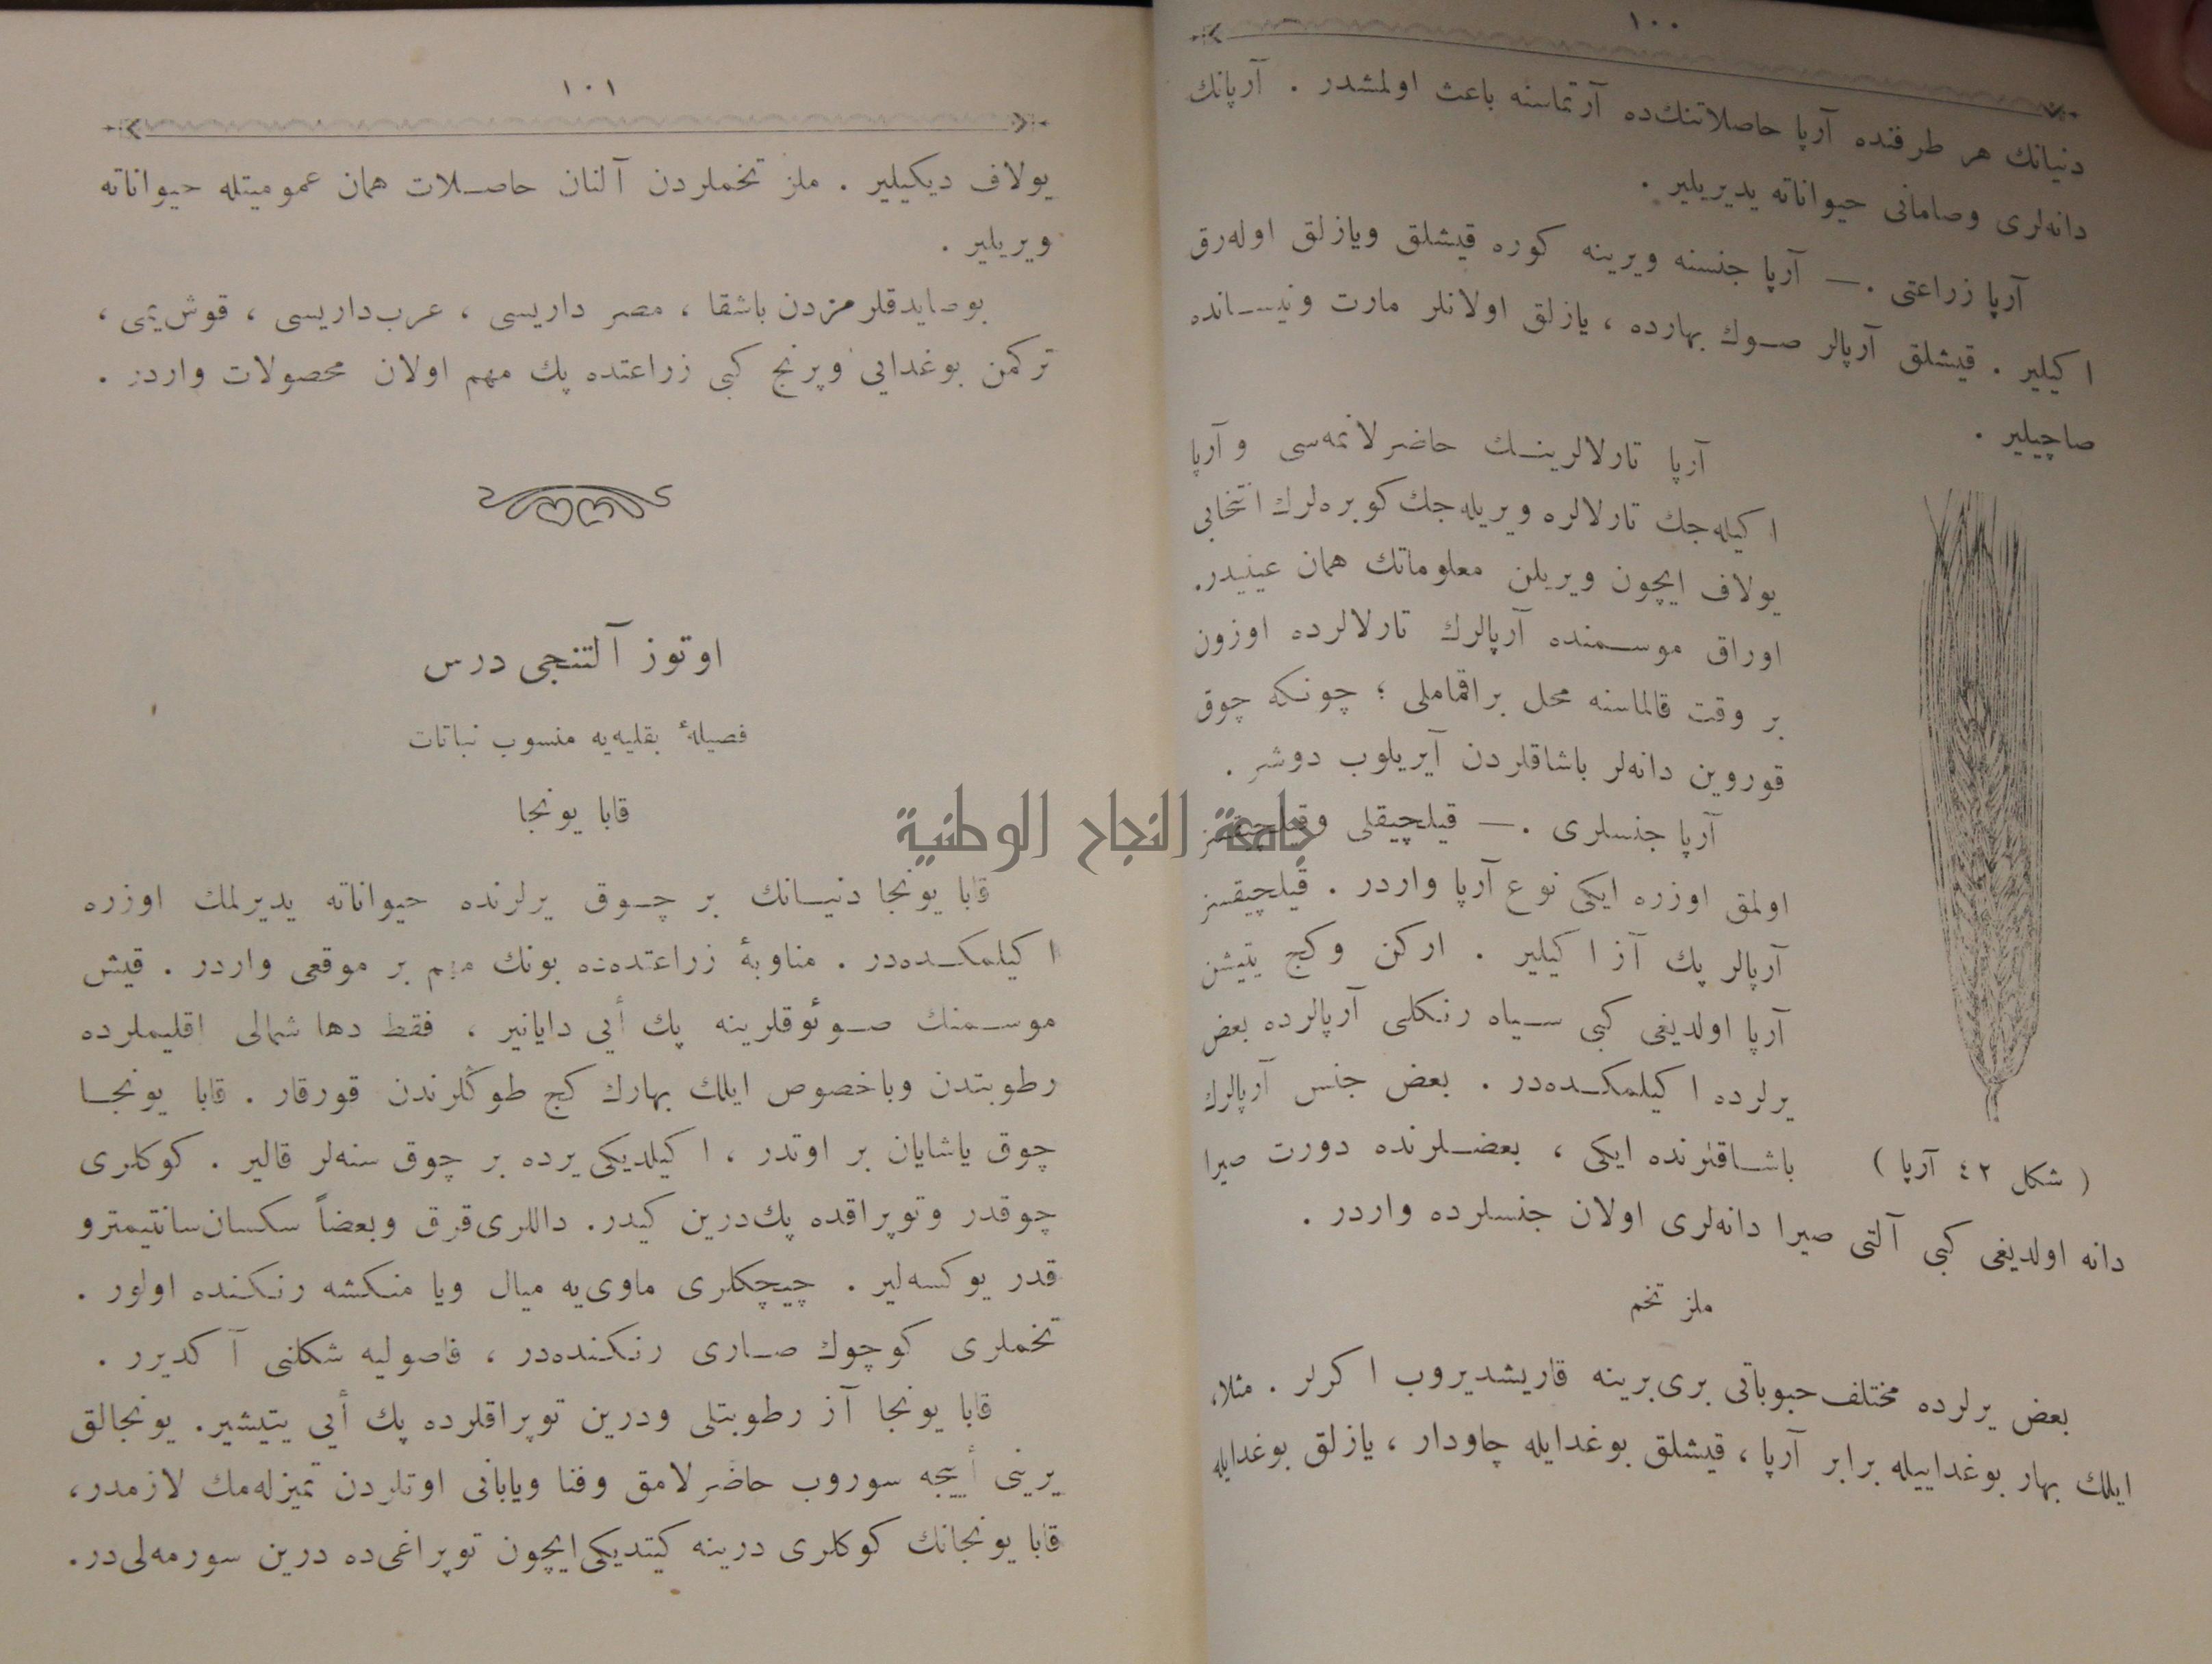 ١٠٠
دنيانك هر طرفنده آرپا حاصلاتنك‌ده آرتماسنه باعث اولمشدر . آرپانك
دانه‌لرى وصامانى حيواناته يديريلير .
آرپا زراعتى .— آرپا جنسنه ويرينه كوره قيشلق ويازلق اوله‌رق
اكيلير . قيشلق آرپالر صوك بهارده ، يازلق اولانلر مارت ونيسانده
صاچيلير .
آرپا تارلالرينك حاضرلانمه‌سى و آرپا
اكيله‌جك تارلالره ويريله‌جك كوبره‌لرك انتخابى
يولاف ايچون ويريلن معلوماتك همان عينيدر.
اوراق موسمنده آرپالرك تارلالرده اوزون
بر وقت قالماسنه محل براقماملى ؛ چونكه چوق
قوروين دانه‌لر باشاقلردن آيريلوب دوشر .
آرپا جنسلرى .— قيلچيقلى وقيلچيقسز
اولمق اوزره ايكى نوع آرپا واردر . قيلچيقسز
آرپالر پك آز اكيلير . اركن وكج يتيشن
آرپا اولديغى كبى سياه رنكلى آرپالرده بعض
يرلرده اكيلمكده‌در . بعض جنس آرپالرك
باشاقلرنده ايكى ، بعضلرنده دورت صيرا
( شكل ٤٢ آرپا )
دانه اولديغى كبى آلتى صيرا دانه‌لرى اولان جنسلرده واردر .
ملز تخم
بعض يرلرده مختلف حبوباتى برى‌برينه قاريشديروب اكرلر . مثلا،
ايلك بهار بوغداييله برابر آرپا ، قيشلق بوغدايله چاودار ، يازلق بوغدايله
١٠١
يولاف ديكيلير . ملز تخملردن آلنان حاصلات همان عموميتله حيواناته
ويريلير .
بوصايدقلرمزدن باشقا ، مصر داريسى ، عرب‌داريسى ، قوش‌يمى ،
تركمن بوغدايى وپرنج كبى زراعتده پك مهم اولان محصولات واردر .
اوتوز آلتنجى درس
فصيلهٔ بقليه‌يه منسوب نباتات
قابا يونجا
قابا يونجا دنيانك بر چوق يرلرنده حيواناته يديرلمك اوزره
اكيلمكده‌در . مناوبهٔ زراعتده‌ده بونك مهم بر موقعى واردر . قيش
موسمنك صوئوقلرينه پك أيى دايانير ، فقط دها شمالى اقليملرده
رطوبتدن وباخصوص ايلك بهارك كج طوڭلرندن قورقار . قابا يونجا
چوق ياشايان بر اوتدر ، اكيلديكى يرده بر چوق سنه‌لر قالير . كوكلرى
چوقدر وتوپراقده پك‌درين كيدر. داللرى‌قرق وبعضاً سكسان‌سانتيمترو
قدر يوكسه‌لير . چيچكلرى ماوى‌يه ميال ويا منكشه رنكنده اولور .
تخملرى كوچوك صارى رنكنده‌در ، فاصوليه شكلنى آكديرر .
قابا يونجا آز رطوبتلى ودرين توپراقلرده پك أيى يتيشير. يونجالق
يرينى أييجه سوروب حاضرلامق وفنا ويابانى اوتلردن تميزله‌مك لازمدر،
قابا يونجانك كوكلرى درينه كيتديكى‌ايچون توپراغى‌ده درين سورمه‌لى‌در.
جامعة النجاح الوطنية